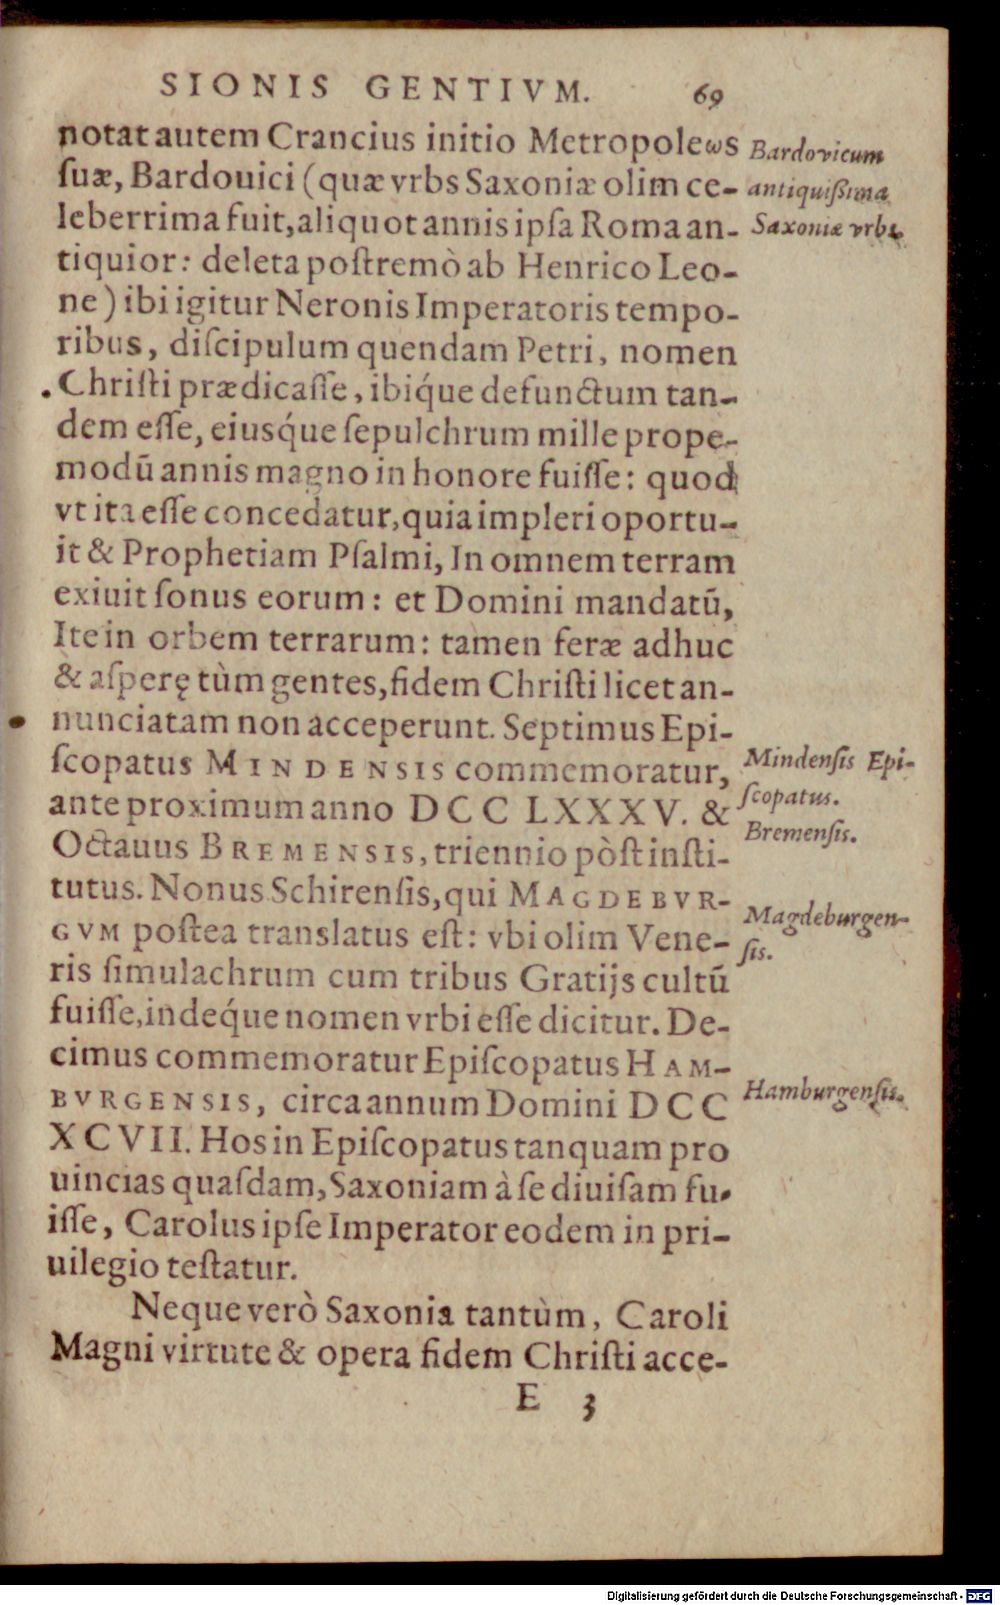 SIONIS GENTIVM. 69
notat autem Crancius initio Metropoleωs
ſuæ, Bardouici (quæ vrbs Saxoniæ olim ce-
leberrima fuit, aliquot annis ipſa Roma an-
tiquior: deleta poſtremò ab Henrico Leo-
ne) ibi igitur Neronis Imperatoris tempo-
ribus, diſcipulum quendam Petri, nomen
Chriſti prædicaſſe, ibiq́ue defunctum tan-
dem eſſe, eiusq́ue ſepulchrum mille prope-
modū annis magno in honore fuiſſe: quod
vt ita eſſe concedatur, quia impleri oportu-
it & Prophetiam Pſalmi, In omnem terram
exiuit ſonus eorum: et Domini mandatū,
Ite in orbem terrarum: tamen feræ adhuc
& aſperę tùm gentes, fidem Chriſti licet an-
nunciatam non acceperunt. Septimus Epi-
ſcopatus MINDENSIS commemoratur,
ante proximum anno DCC LXXXV. &
Octauus BREMENSIS, triennio pòſt inſti-
tutus. Nonus Schirenſis, qui MAGDEBVR-
GVM poſtea translatus eſt: vbi olim Vene-
ris ſimulachrum cum tribus Gratijs cultū
fuiſſe, indeq́ue nomen vrbi eſſe dicitur. De-
cimus commemoratur Epiſcopatus HAM-
BVRGENSIS, circa annum Domini DCC
XCVII. Hos in Epiſcopatus tanquam pro
uincias quaſdam, Saxoniam à ſe diuiſam fu-
iſſe, Carolus ipſe Imperator eodem in pri-
uilegio teſtatur.
Neque verò Saxonia tantùm, Caroli
Magni virtute & opera fidem Chriſti acce-
E 3
Bardovicum
antiquißima
Saxoniæ vrbs.
Mindenſis Epi-
ſcopatus.
Bremenſis.
Magdeburgen-
ſis.
Hamburgenſis.
Digitalisierung gefördert durch die Deutsche Forschungsgemeinschaft - DFG